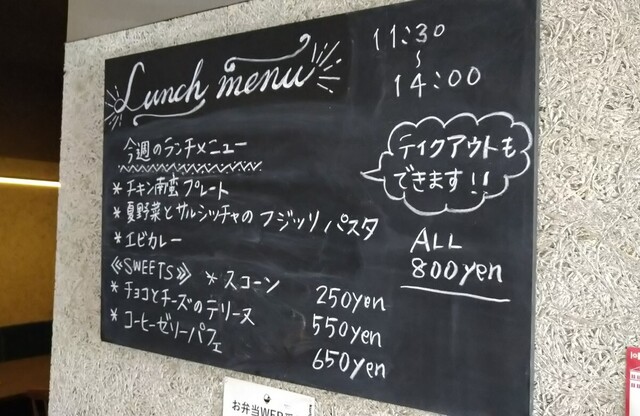 Lunch menu
11:30
~
14:00
今週のランチメニュー
* チキン南蛮プレート
* 夏野菜とサルシッチャのフジッリパスタ
* エビカレー
テイクアウトも
できます!!
ALL
800yen
《SWEETS》
* スコーン 250yen
* チョコとチーズのテリーヌ 550yen
* コーヒーゼリーパフェ 650yen
お弁当WEB